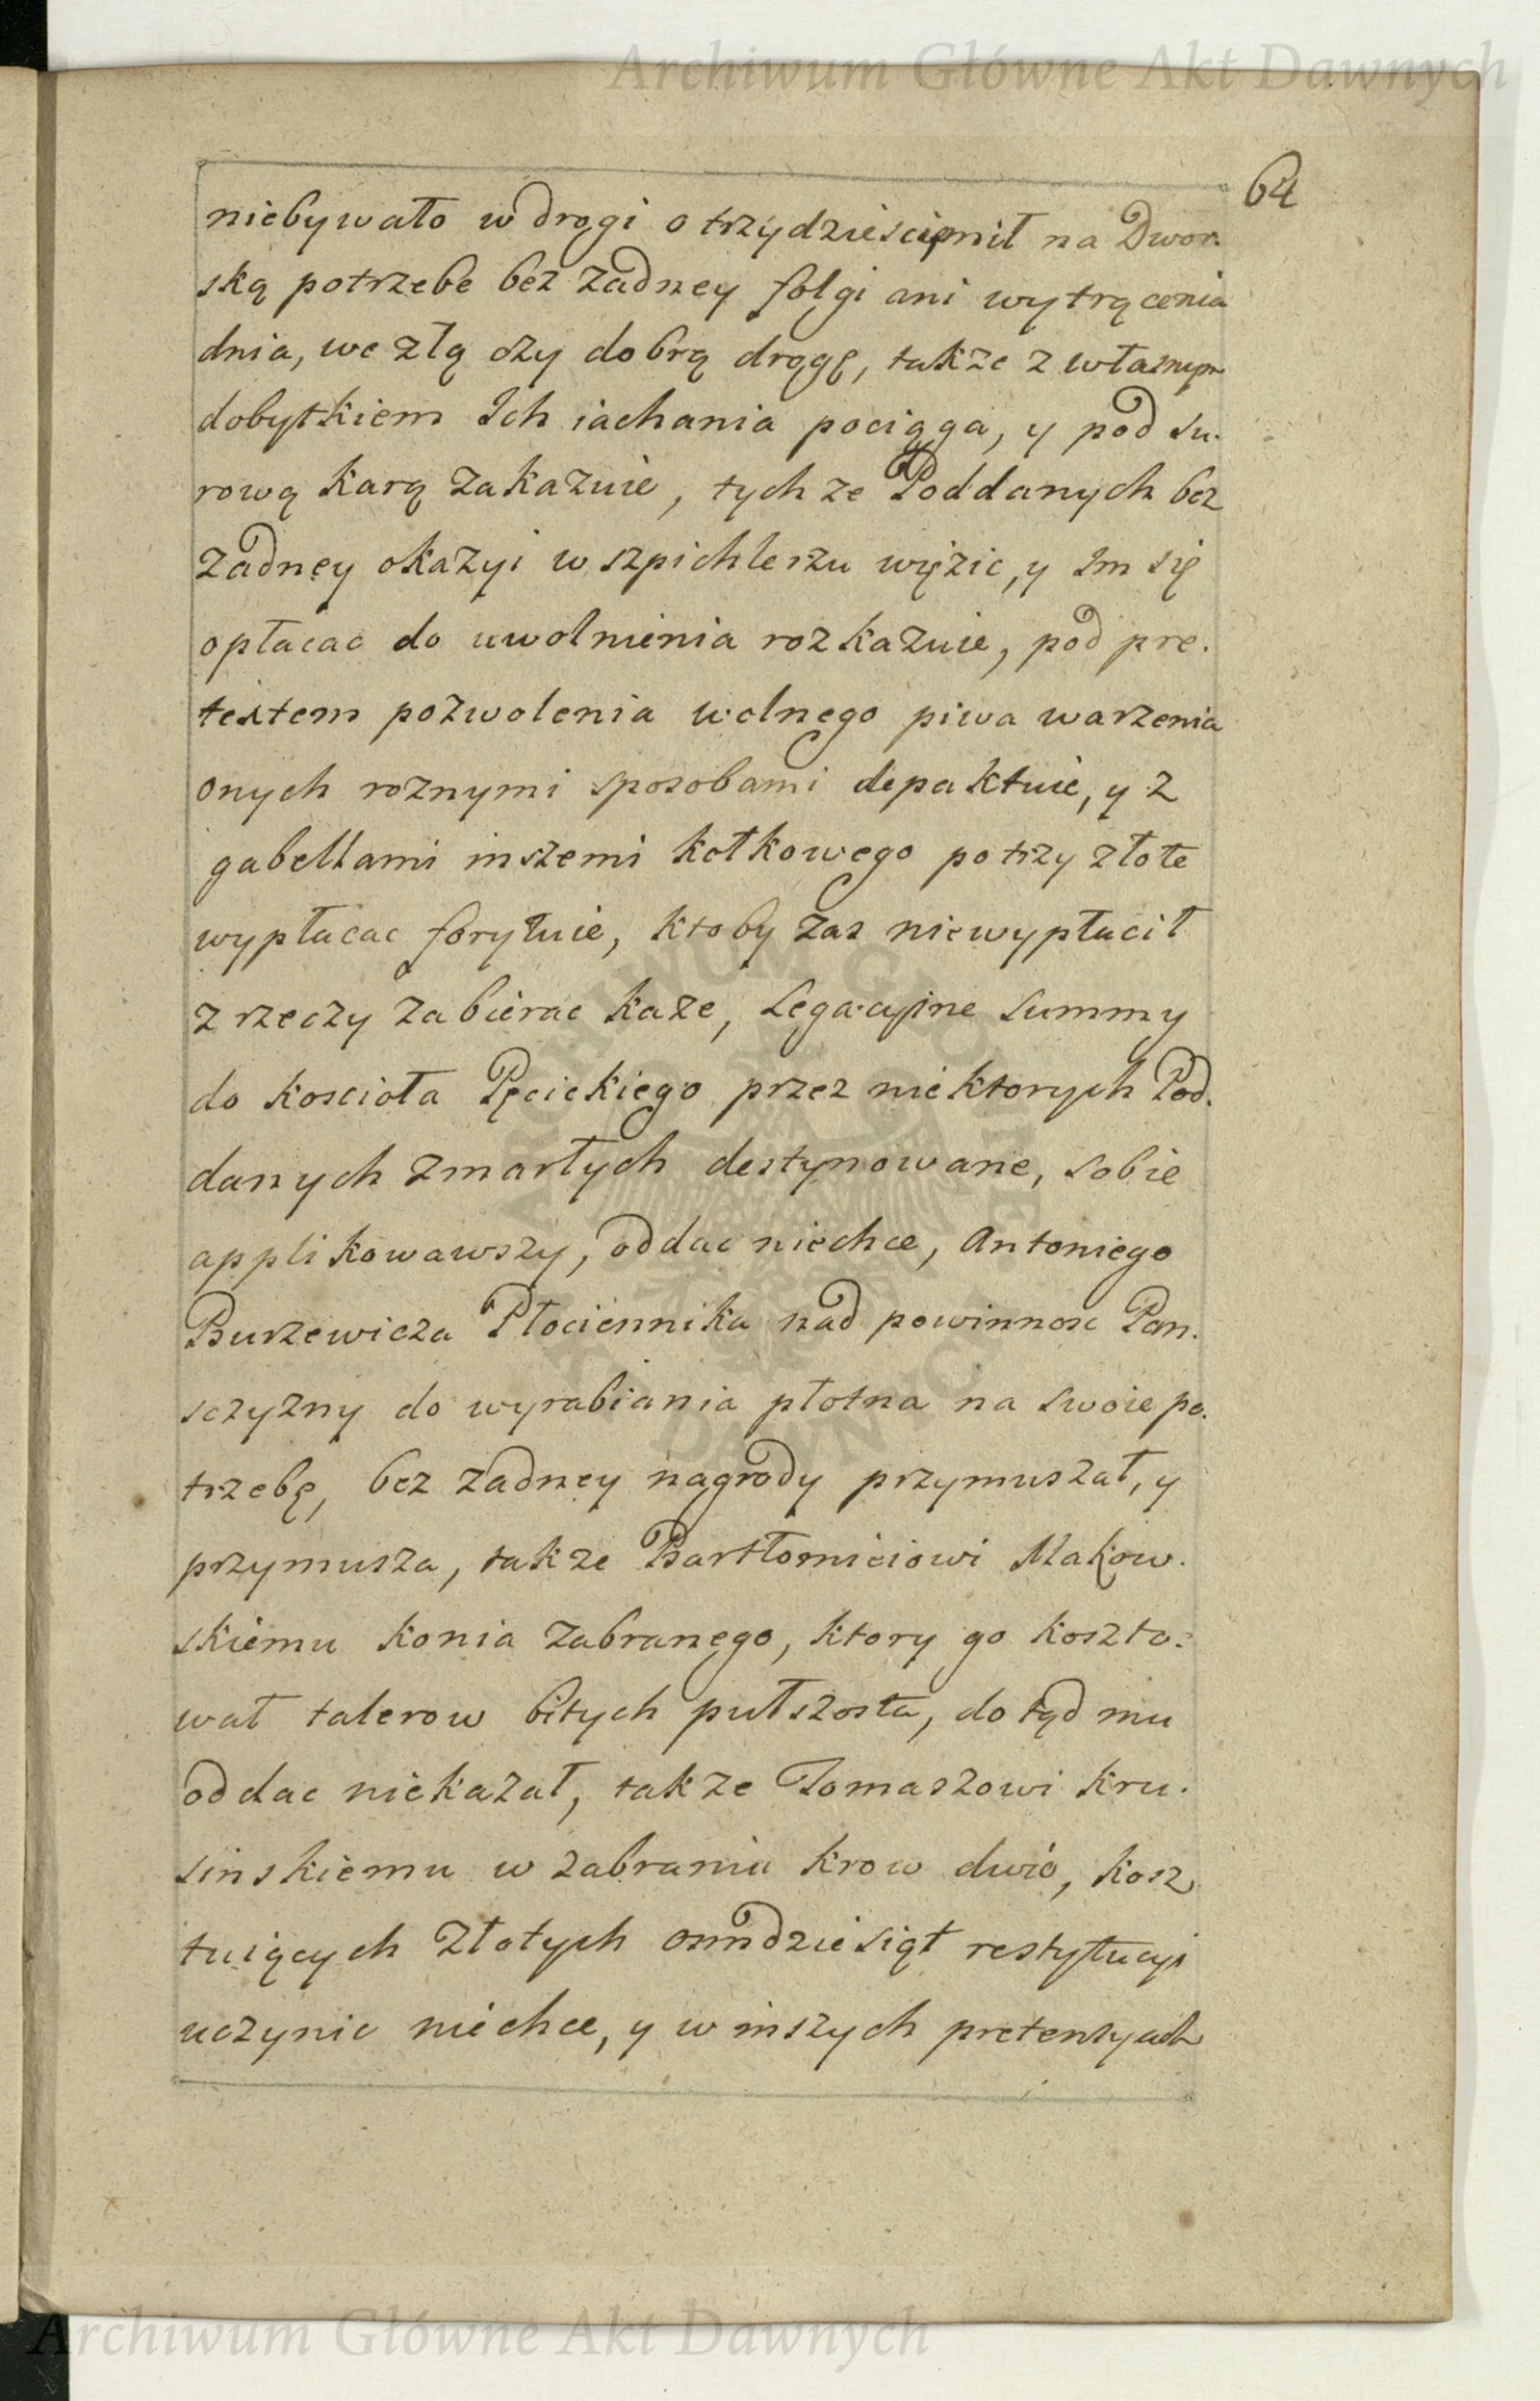 Archiwum Główne Akt Dawnych
64
niebywało w drogi o trzydziesci mil na Dwor.
ską potrzebe bez zadney folgi ani wytrącenia
dnia, we złą czy dobrą drogę, także z własnym
dobytkiem Ich iachania pociąga, y pod su.
rową karą zakazuie, tych ze Poddanych bez
zadney okazyi w szpichlerzu więzic, y Im się
opłacac do uwolnienia rozkazuie, pod pre.
textem pozwolenia wolnego piwa warzenia
onych roznymi sposobami depaktuie, y z
gabellami inszemi kotkowego po trzy złote
wypłacac forytuie, ktoby zas niewypłacił
z rzeczy zabierac kaze, Legacyine summy
do koscioła Pęcickiego przez niektorych Pod.
danych zmarłych destynowane, sobie
applikowawszy, oddac niechce, Antoniego
Burzewicza Płociennika nad powinnosc Pan.
sczyzny do wyrabiania płotna na swoie po.
trzebę, bez zadney nagrody przymuszał, y
przymusza, takze Bartłomieiowi Makow.
skiemu konia zabranego, ktory go koszto.
wał talerow bitych pułszosta, do tąd mu
oddac niekazał, takze Tomaszowi Kru.
sinskiemu w zabraniu krow dwio, kosz
tuiących Złotych osmdziesiąt restytucyi
uczynic niechce, y w inszych pretensyach
Archiwum Główne Akt Dawnych